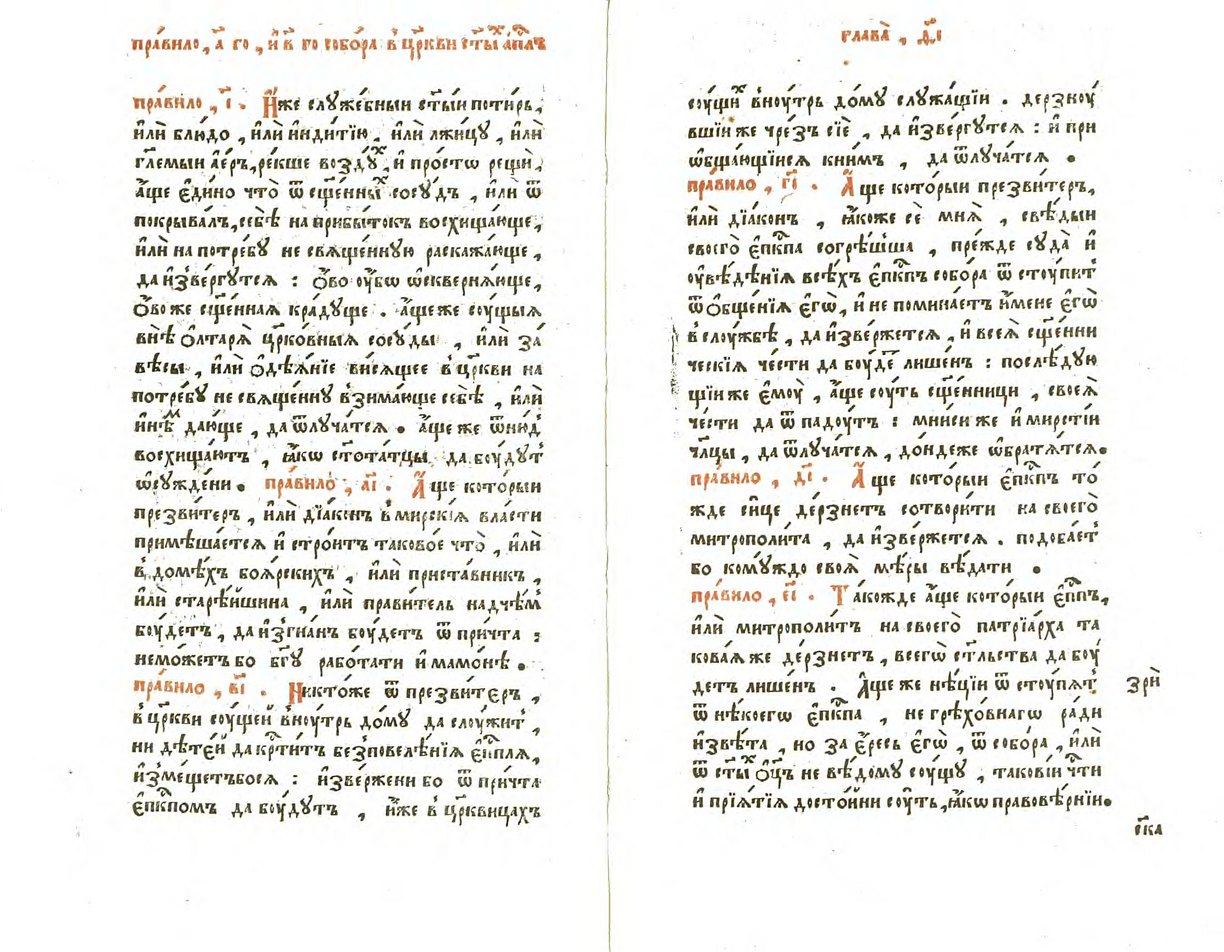 пра́вило , а҃ го , и҆ в҃ го собо́ра в цр҃кви ст҃ы́хъ а҆пл҃ъ
пра́вило , і҃ . И҆́же служе́бныи ст҃ы́и поти́рь ,
и҆лѝ блю́до , и҆лѝ и҆нди́тїю , и҆лѝ лжи́цу , и҆лѝ
гл҃емыи а҆е́ръ, ре́кше во́здꙋхъ, и҆ про́стѡ рещѝ ,
а҆́ще є҆ди́но что̀ ѿ сщ҃е́нныхъ сосу́дъ , и҆лѝ ѿ
покрыва́лъ, себѣ̀ на прибы́токъ восхища́юще ,
и҆лѝ на потре́бꙋ не свяще́нную раскажа́юще ,
да и҆зве́ргꙋтся : ѻ҆́во ᲂу҆́бѡ ѡ҆скверня́юще ,
ѻ҆́во же сщ҃е́нная кра́дꙋще . а҆́ще же сᲂу́щыѧ
внѣ̀ ѻ҆лтарѧ̀ цр҃ко́вныѧ сосу́ды , и҆лѝ за
вѣ́сы , и҆лѝ ѻ҆дѣѧ́нїе вися́щее в цр҃кви на
потре́бꙋ не свяще́ннꙋ взима́юще себѣ̀ , и҆лѝ
и҆нѣ́мъ даю́ще , да ѿлꙋча́тся . а҆́ще же ѿнюд
восхища́ютъ , ꙗ҆́кѡ ст҃ота́тцы, да бᲂу́дꙋт
ѡ҆сꙋжде́ни . пра́вило , а҃і . А҆́ще кото́рыи
презви́теръ , и҆лѝ дїа́конъ в мирскі́ѧ вла́сти
примѣша́ется и҆ стро́итъ таково́е что̀ , и҆лѝ
в домѣ́хъ боѧ́рскихъ , и҆лѝ приста́вникъ ,
и҆лѝ старѣ́йшина , и҆лѝ прави́тель над чѣ́м
бᲂу́детъ , да и҆згна́нъ бᲂу́детъ ѿ при́чта :
не мо́жетъ бо бг҃ꙋ рабо́тати и҆ мамо́нѣ .
пра́вило , в҃і . Никто́же ѿ презви́теръ ,
в цр҃кви сᲂу́щей внᲂу́трь до́мꙋ да слᲂу́житъ ,
ни дѣте́й да крⷭ҇ти́тъ без повелѣ́нїѧ є҆пⷭ҇пля ,
и҆зме́щетъ бося : и҆зве́ржени бо ѿ при́чта
є҆пкⷭ҇помъ да бᲂу́дꙋтъ , и҆́же в цр҃квицахъ
глава̀ , д҃і
сᲂу́щихъ внᲂу́трь до́мꙋ слꙋжа́щїи . дерзнᲂу́
вшїи же чрезъ сїѐ , да и҆зве́ргꙋтся : и҆ при
ѡ҆бща́ющїися к ни́мъ , да ѿлꙋча́тся .
пра́вило , г҃і . А҆́ще кото́рыи презви́теръ,
и҆лѝ дїа́конъ , ꙗ҆́коже се мнѧ̀ , свѣ́дыи
своего̀ є҆пкⷭ҇па согрѣ́шша , пре́жде сꙋда̀ и҆
ᲂу҆вѣ́дѣнїѧ всѣ́хъ є҆пкⷭ҇пъ собо́ра ѿ стꙋ́пит
ѿ ѻ҆бще́нїѧ є҆гѡ̀, и҆ не помина́етъ и҆́мене є҆гѡ̀
в слᲂу́жбѣ , да и҆зве́ржется , и҆ всеѧ̀ сщ҃е́нни
ческїѧ че́сти да бᲂу́детъ лише́нъ : послѣ́дꙋю
щїи же є҆мᲂу̀ , а҆́ще сᲂу́ть сщ҃е́нници , своеѧ̀
че́сти да ѿ падᲂу́тъ : мни́си же и҆ мирсті́и
чл҃цы , да ѿлꙋча́тся , до́ндеже ѡ҆братя́тся.
пра́вило , д҃і . А҆́ще кото́рыи є҆пкⷭ҇пъ то́
жде си́це дерзне́тъ сотвори́ти на своего̀
митрополи́та , да и҆зве́ржется . подоба́ет
бо комꙋ́ждо своѧ̀ мѣ́ры вѣ́дати .
пра́вило , є҃і . Та́кожде а҆́ще кото́рыи є҆пⷭ҇пъ,
и҆лѝ митрополи́тъ на своего̀ патрїа́рха та
кова́ѧ же де́рзнетъ , всегѡ̀ ст҃льства да бᲂу́
детъ лише́нъ . А҆́ще же нѣ́цїи ѿ стᲂу́пѧт
ѿ нѣ́коегѡ є҆пкⷭ҇па , не грѣхо́внагѡ ра́ди
и҆звѣ́та , но за є҆́ресь є҆гѡ̀ , ѿ собо́ра , и҆лѝ
ѿ ст҃ы́хъ ѻ҆ц҃ъ не вѣ́домꙋ сᲂу́щꙋ , такові́и чⷭ҇ти
и҆ прїѧ́тїѧ досто́йни сᲂу́ть, ꙗ҆́кѡ правовѣ́рнїи.
зрѝ
ст҃ка